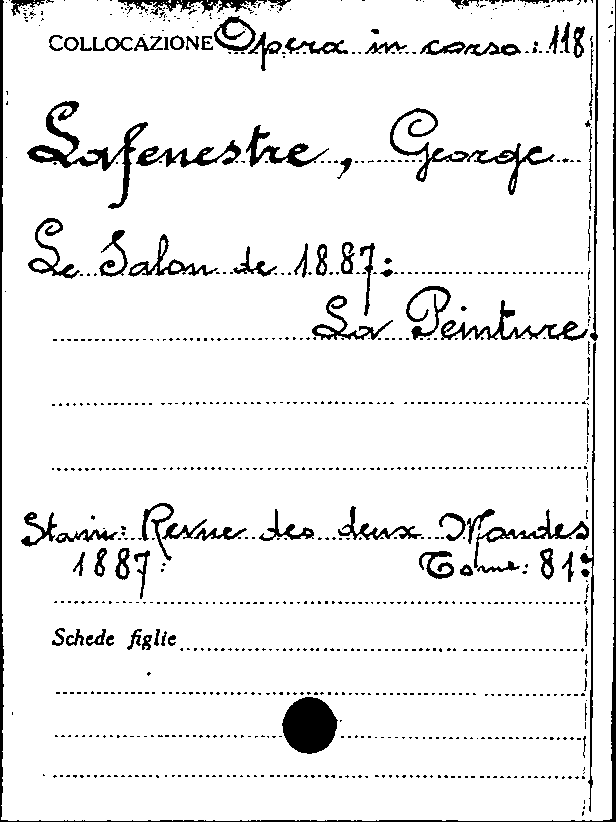 COLLOCAZIONE Opera in corso: 118
Lafenestre, George
Le Salon de 1887:
La Peinture.
Sta in: Revue des deux Mondes
1887: Tome: 81:
Schede figlie